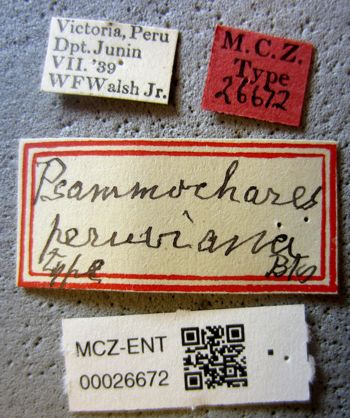 Victoria, Peru
Dpt. Junin
VII. '39
WFWalsh Jr.
M. C. Z.
Type
26672
Psammochares
peruviana
Type Bks
MCZ-ENT
00026672